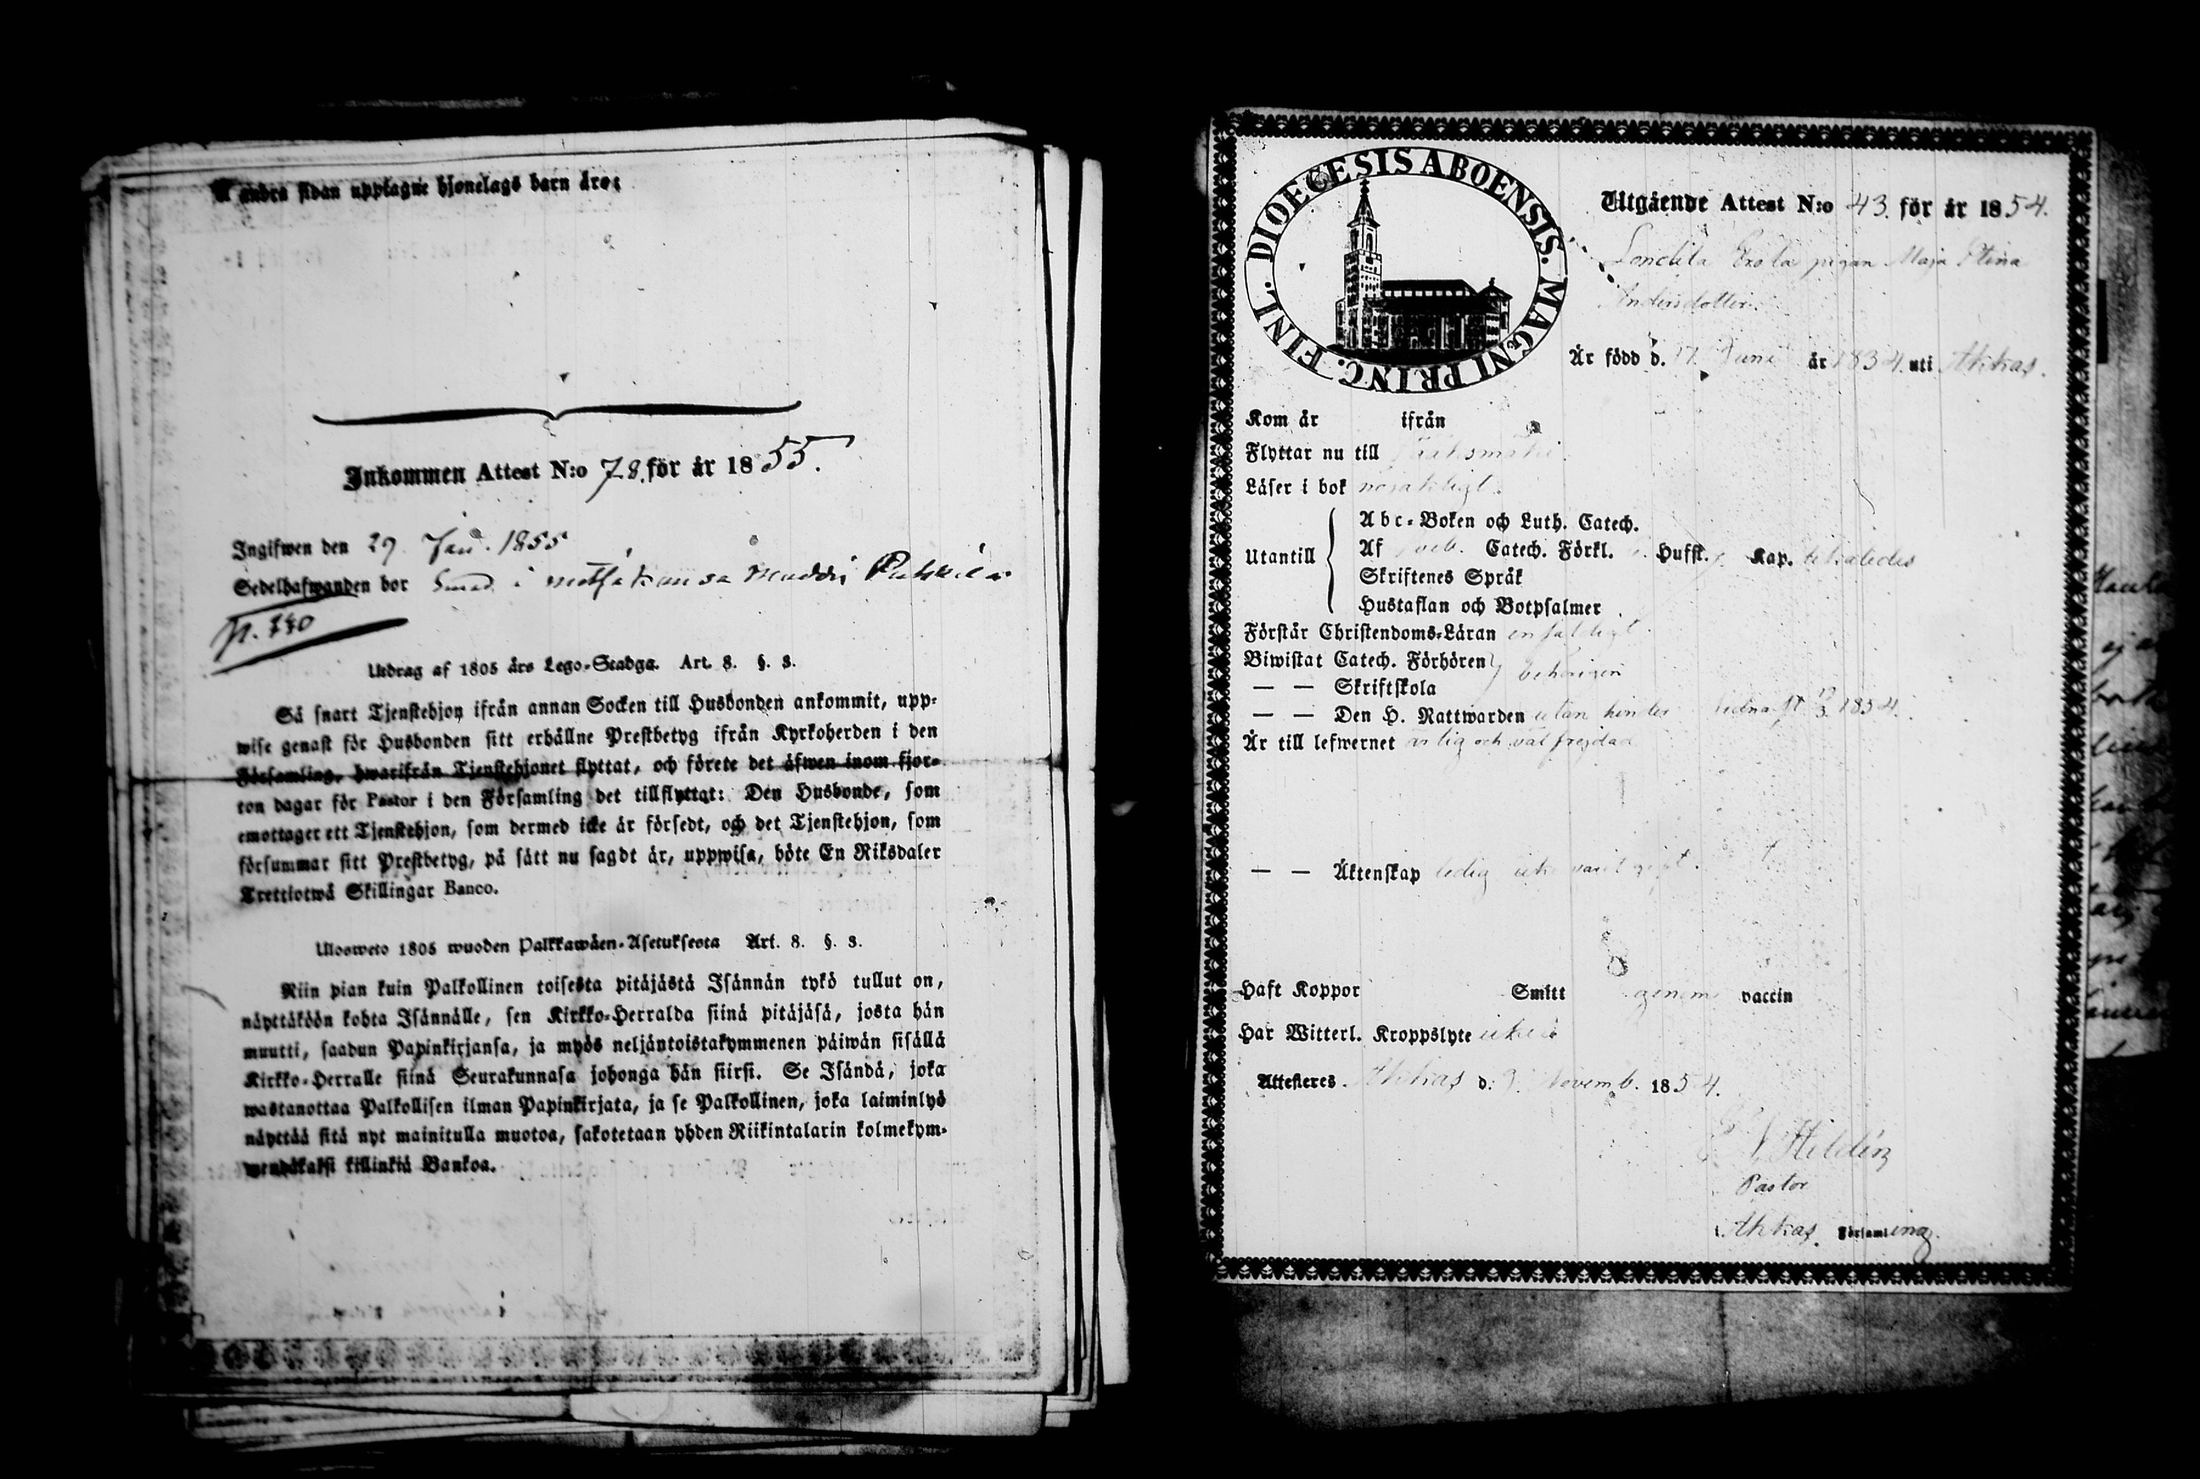 å andra sidan upptagne hjonelags barn äro:
Inkommen Attest N:o 78. för år 1855.
Ingifwen den 29 Jan. 1855
Sedelhafwanden bor i
p. 340
Utdrag af 1805 års Lego-Stadga. Art. 8. §. 3.
Så snart Tjenstehjon ifrån annan Socken till Husbonden ankommit, upp-
wise genast för Husbonden sitt erhållne Prestbetyg ifrån Kyrkoherden i den
Församling, hwarifrån Tjenstehjonet flyttat, och förete det äfwen inom fjor-
ton dagar för Pastor i den Församling det tillflyttat: Den Husbonde, som
emottager ett Tjenstehjon, som dermed icke är försedt, och det Tjenstehjon, som
försummar sitt Prestbetyg, på sätt nu sagdt är, uppwisa, böte En Riksdaler
Trettiotwå Skillingar Banco.
Ulosweto 1805 wuoden Palkkawäen-Asetuksesta Art. 8. §. 3.
Niin pian kuin Palkollinen toisesta pitäjästä Isännän tykö tullut on,
näyttäköön kohta Isännälle, sen Kirkko-Herralda siinä pitäjäsä, josta hän
muutti, saadun Papinkirjansa, ja myös neljäntoistakymmenen päiwän sisällä
Kirkko-Herralle siinä Seurakunnasa johonga hän siirsi. Se Isändä, joka
wastanottaa Palkollisen ilman Papinkirjata, ja se Palkollinen, joka laiminlyö
näyttää sitä nyt mainitulla muotoa, sakotetaan yhden Riikintalarin kolmekym-
wendäkaksi killinkiä Bankoa.
DIOECESIS ABOENSIS. MAGNI PRINC. FINL.
Utgående Attest N:o 43. för år 1854.
pigan Maja Stina
Andersdotter.
Är född d. 17 Juni år 1834 uti Ahkas.
Kom år ifrån
Flyttar nu till
Läser i bok
Utantill
Abc-Boken och Luth. Catech.
Af Catech. Förkl. Husst. Kap.
Skriftenes Språk
Hustaflan och Botpsalmer
Förstår Christendoms-Läran enfaldigt
Biwistat Catech. Förhören behörigen
— — Skriftskola
— — Den H. Nattwarden utan hinder 1854.
Är till lefwernet ärlig och wäl frejdad
— — Äktenskap ledig icke varit gift.
Haft Koppor Smitt genom vaccin
Har Witterl. Kroppslyte icke
Attesteres. Ahkas d: 3 Novemb. 1854.
Hildén
Pastor
Ahkas Församling.